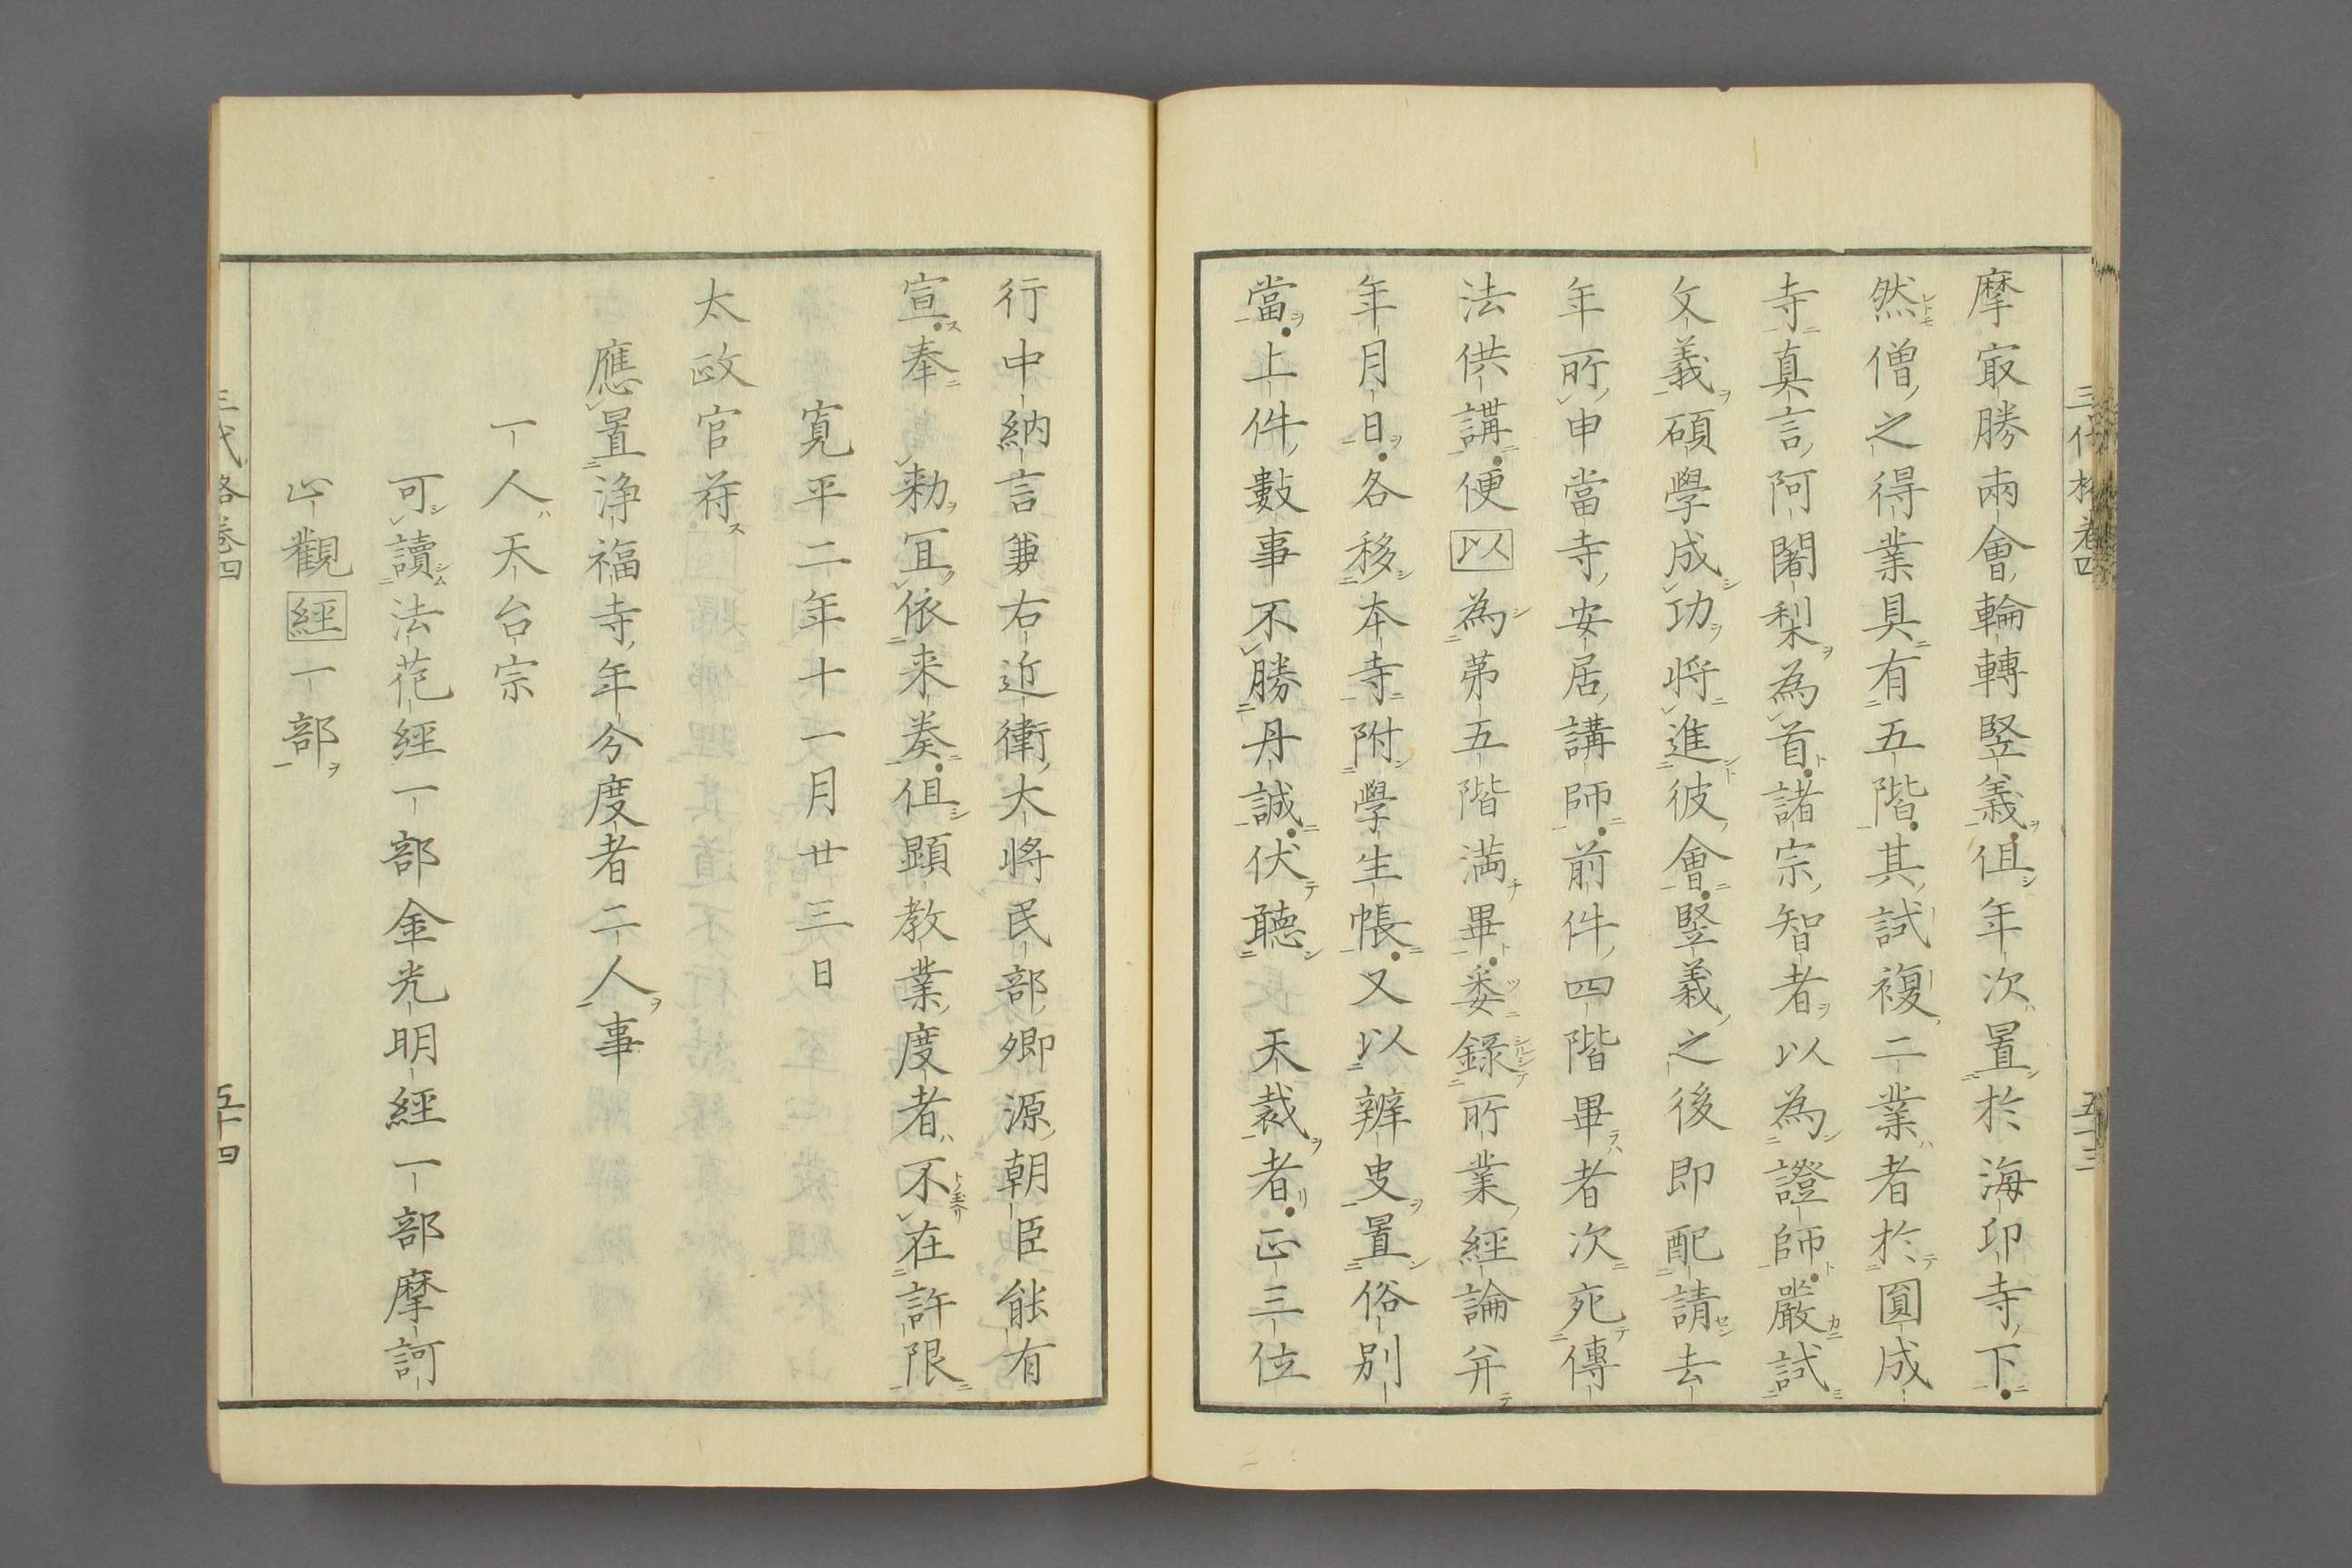 三代格卷四 五十三
摩㝡勝兩會輪轉竪義但年次置於海印寺下
然僧之得業具有五階其試複二業者於圓成
寺真言阿闍梨為首諸宗智者以為證師嚴試
文義碩學成功将進彼會竪義之後即配請去
年所申當寺安居講師前件四階畢者次宛傳
法供講便以為苐五階満畢委錄所業經論并
年月日各移本寺附學生帳又以辨㕝置俗別
當上件數事不勝丹誠伏聽 天裁者正三位
行中納言兼右近衛大将民部卿源朝臣能有
宣奉 勅冝依来奏但顕教業度者不在許限
寛平二年十一月廿三日
太政官符
應置浄福寺年分度者二人事
一人天台宗
可讀法花經一部金光明經一部摩訶
止觀經一部
三代格卷四 五十四